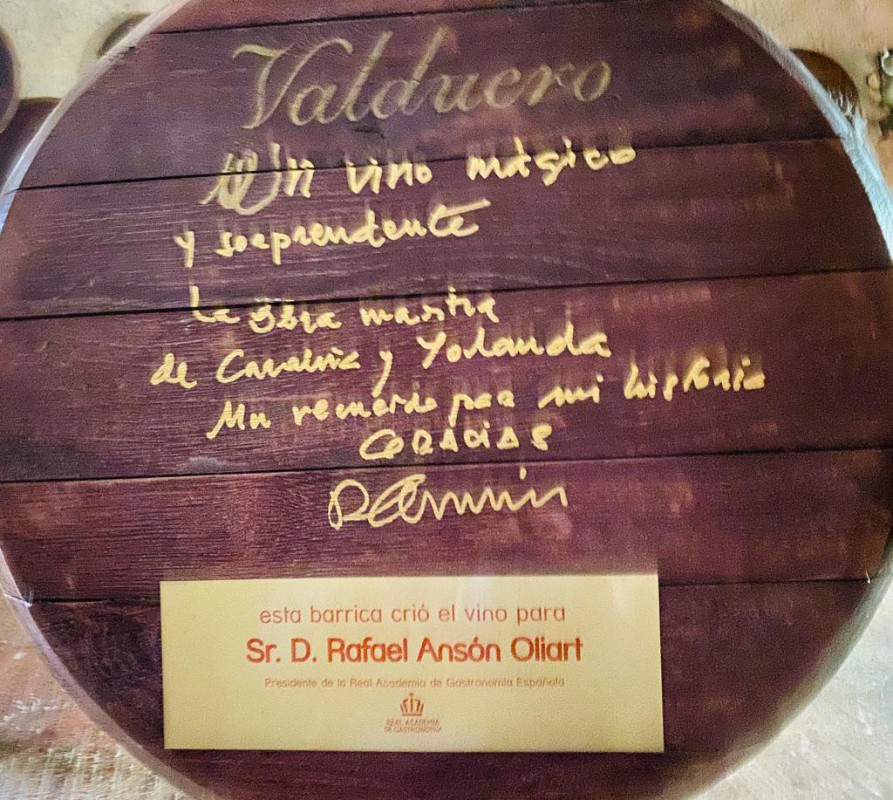 Valduero
Un vino mágico
y sorprendente
La obra mastra
de Carolina y Yolanda
Un recuerdo para mi historia
GRACIAS
esta barrica crió el vino para
Sr. D. Rafael Ansón Oliart
Presidente de la Real Academia de Gastronomía Española
REAL ACADEMIA
DE GASTRONOMÍA